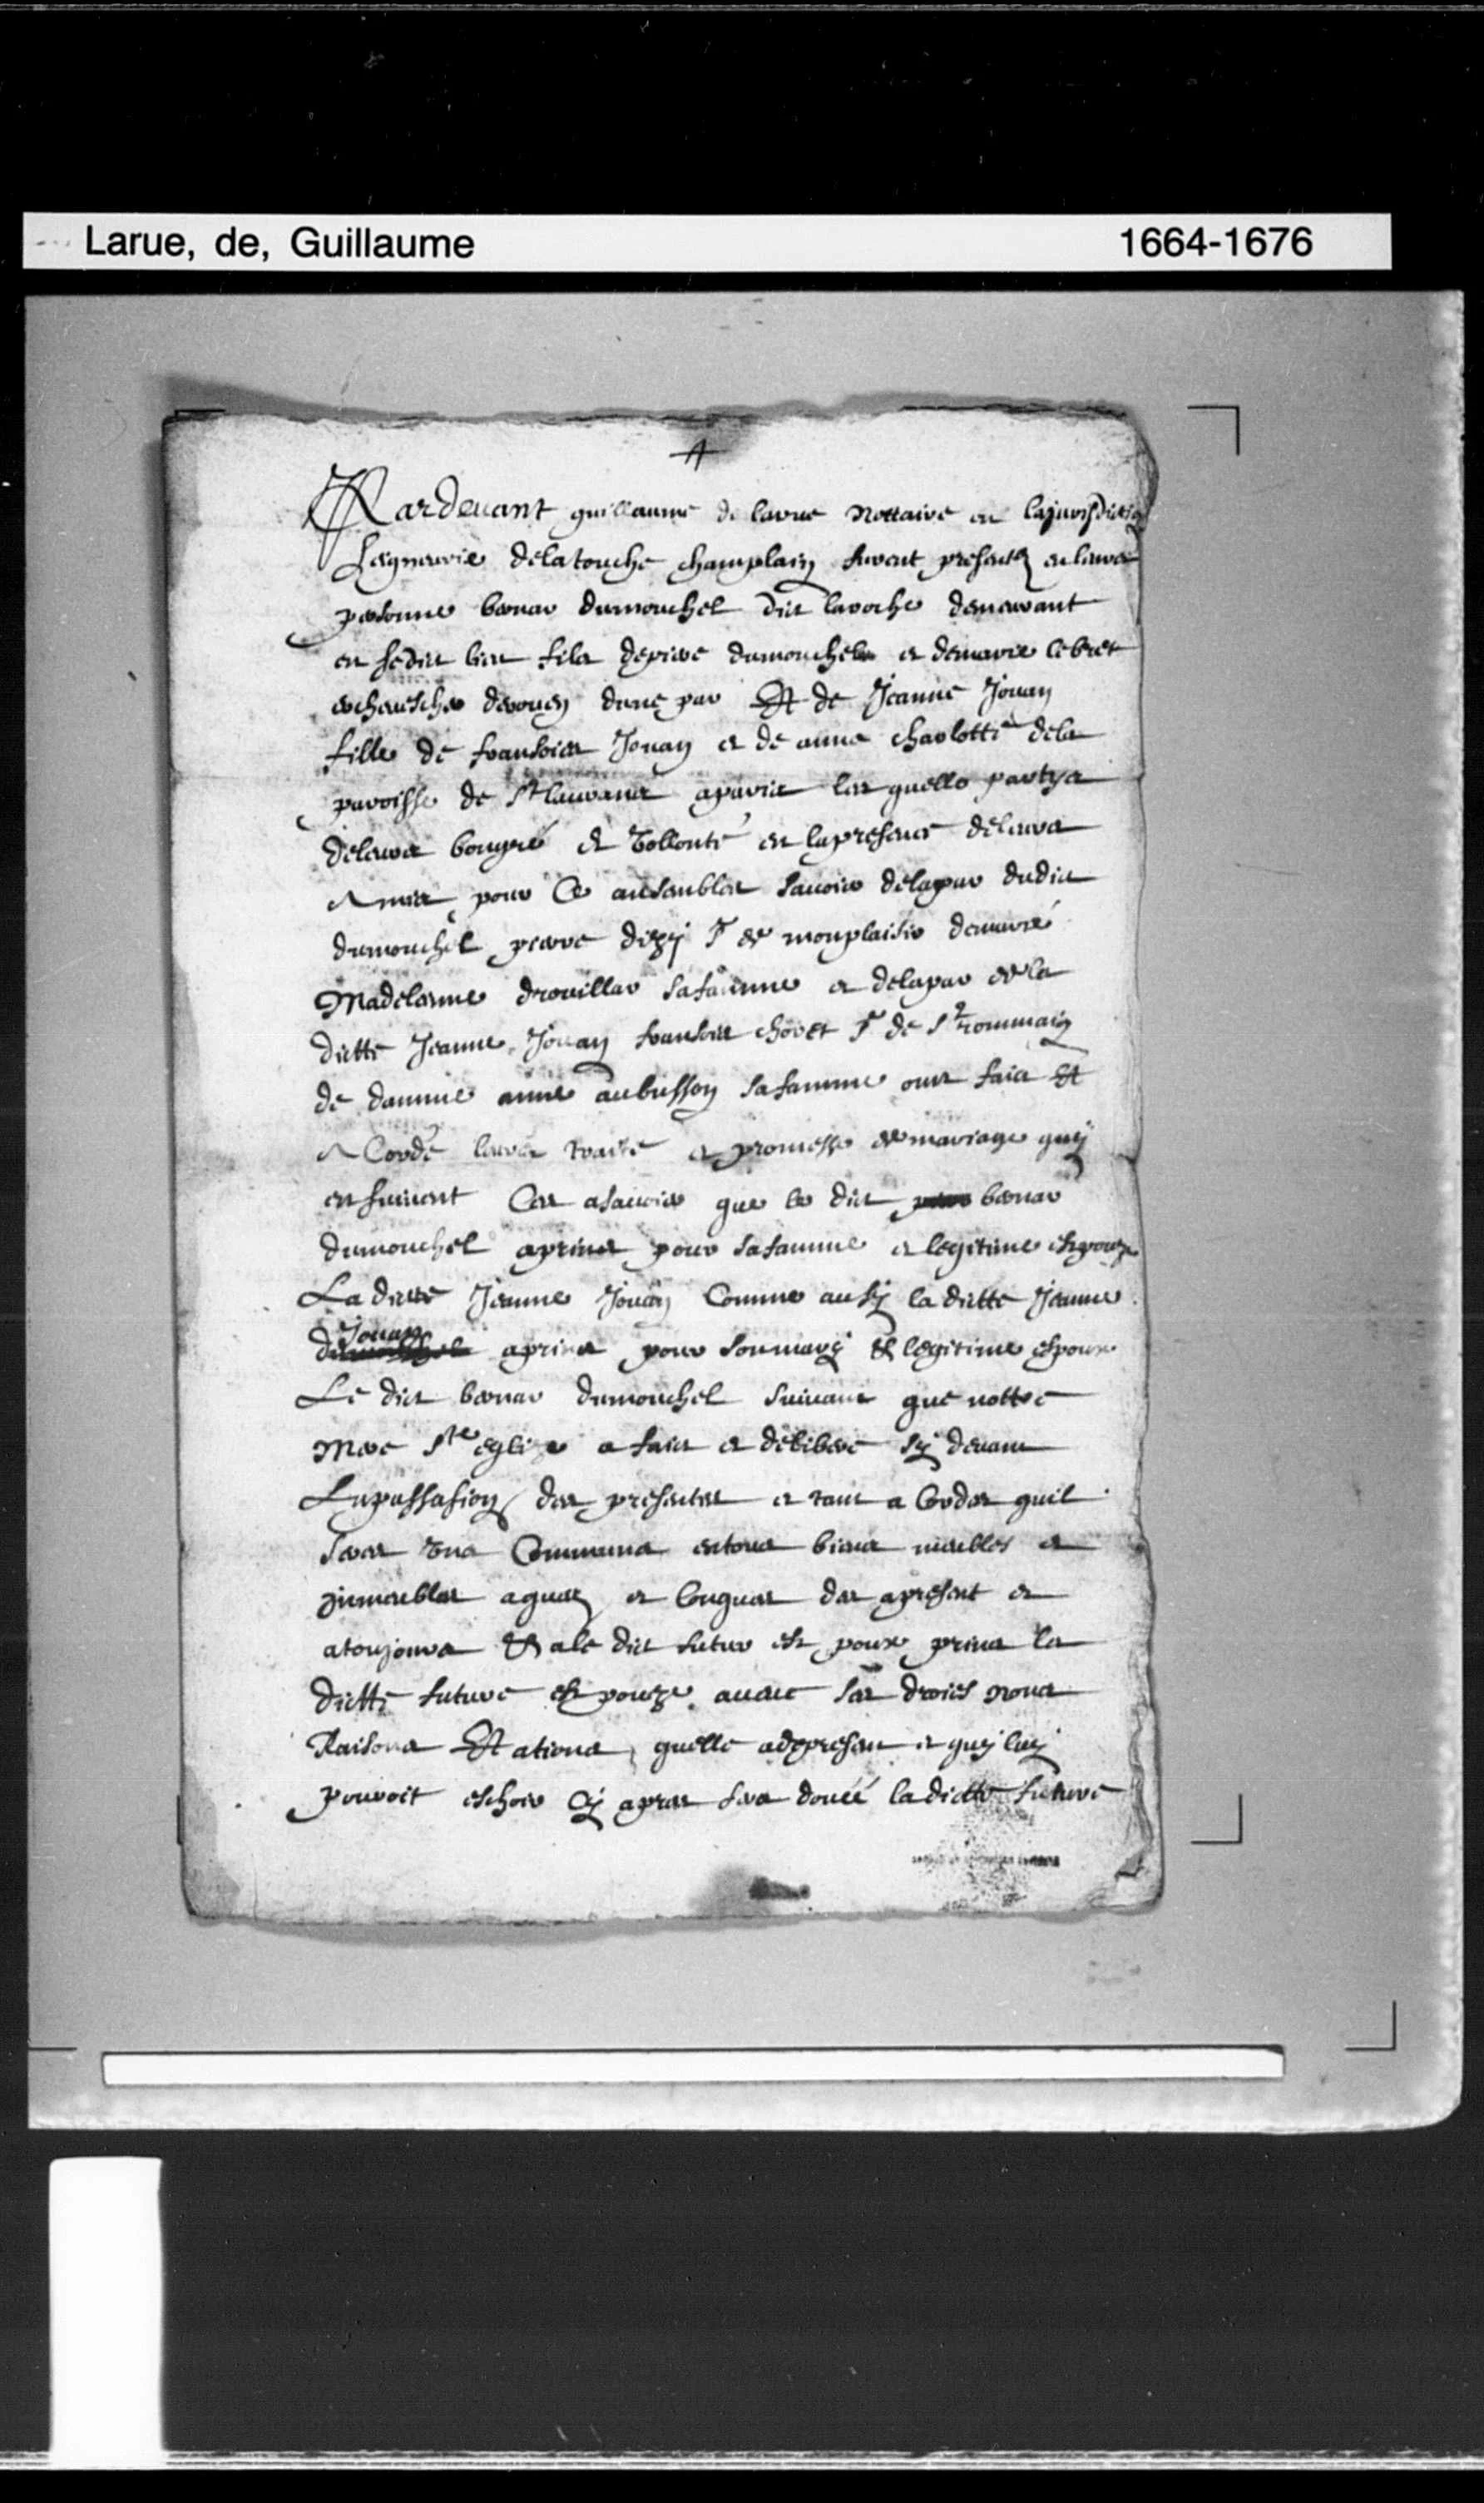 Larue, de, Guillaume 1664-1676
Pardeuant guillaume de larue nottaire en lajurisdiction
seigneurie delatouche champlain furent presents enleurs
personne bernar dumouchel dict laroche demeurant
en sedict lieu fils depiere dumouchel et demarie lebret
deroueŋ dune par Et de Jeanne Jouan
fille de fransois Jouan et de anne charlotte dela
paroisse de St laurans aparis les quelle partys
deleurs bongré et vollonté en lapresence deleurs
Amis pour Ce ansanbles sauoir delapar dudict
dumouchel pierre dizy Sr de monplaisir demarie
Madelenne drouillar safamme et delapar de la
dictte Jeanne Jouan fransois choret Sr de St rommain
de damme anne aubusson safamme ont faict Et
ACordé leurs traité et promesse de mariage quy
ensuiuent Ces asauoir que le dict bernar
dumouchel aprins pour safamme et legitime espouze
La dictte Jeanne Jouan Comme ausy la dictte Jeanne
Jouan aprins pour sonmary et legitime espoux
Le dict bernar dumouchel suiuant que nottre
Mere Ste eglize a faict et deliberé sy deuant
Lapassasion des presentes et tant aCordes quil
seres uns Communs entous biens meubles et
jmmeubles aques et Conques des apresent et
atoujours Et ale dict futur es poux prins la
dictte future es pouze auecc ses droics noms
Raisons Et ations quelle adepresen et quy luy
pouroit eschoir Cy apres sera doueé ladictte future